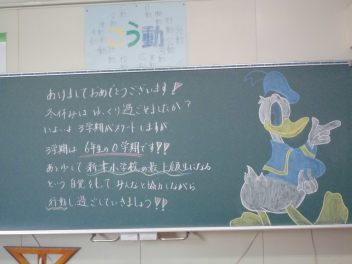 こう動
あけましておめでとうございます!
冬休みはゆっくり過ごせましたか?
いよいよ3学期がスタートしますが、
3学期は6年生の0学期です!!
あと少しで新 小学校の最上級生になる
という自覚をもって みんなと協力しながら
行動し過ごしていきましょう!!